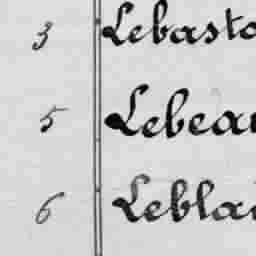 3 Lebasto
5 Lebeau
6 Leblai